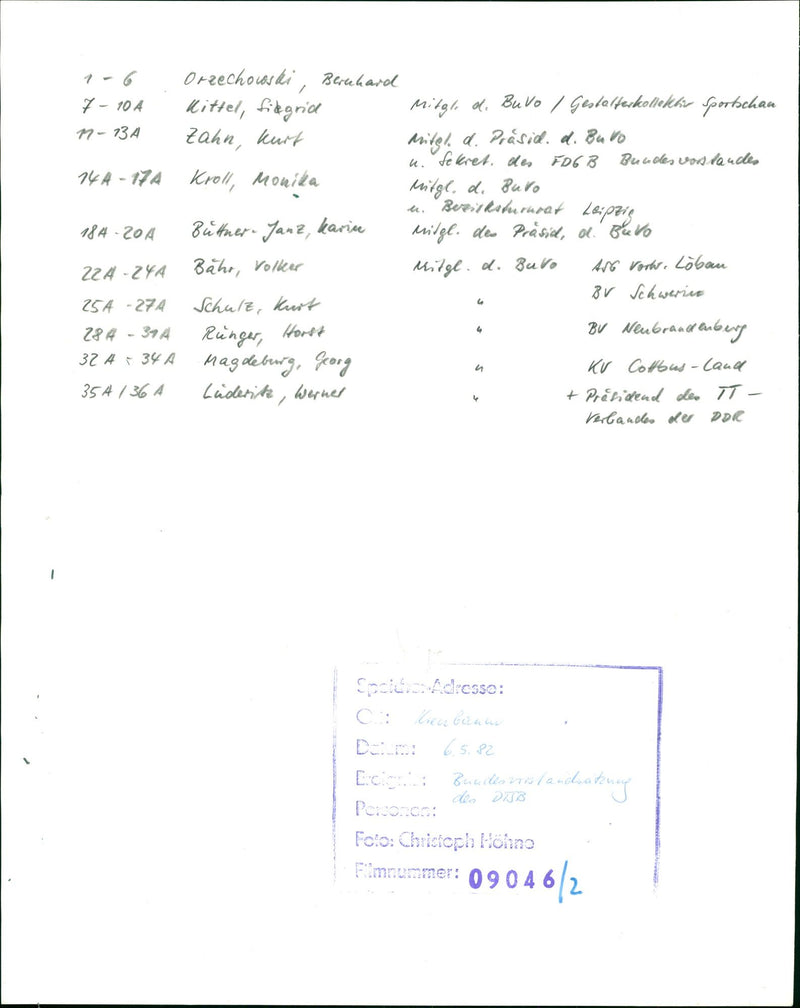 1 - 6 Orzechowski, Bernhard
7 - 10A Kittel, Siegrid Mitgl. d. BuVo / Gestalterkollektiv Sportschau
11 - 13A Zahn, Kurt Mitgl. d. Präsid. d. BuVo
u. Sekret. des FDGB Bundesvorstandes
14A - 17A Kroll, Monika Mitgl. d. BuVo
u. Bezirksturnrat Leipzig
18A - 20A Büttner-Janz, Karin Mitgl. des Präsid. d. BuVo
22A - 24A Bähr, Volker Mitgl. d. BuVo ASG Vorw. Löbau
25A - 27A Schulz, Kurt " BV Schwerin
28A - 31A Rünger, Horst " BV Neubrandenburg
32A - 34A Magdeburg, Georg " KV Cottbus-Land
35A / 36A Lüderitz, Werner " + Präsidend des TT -
Verbandes der DDR
Speicher-Adresse:
Ort: Kienbaum
Datum: 6.5.82
Ereignis: Bundesvorstandssitzung
des DTSB
Personen:
Foto: Christoph Höhne
Filmnummer: 09046/2